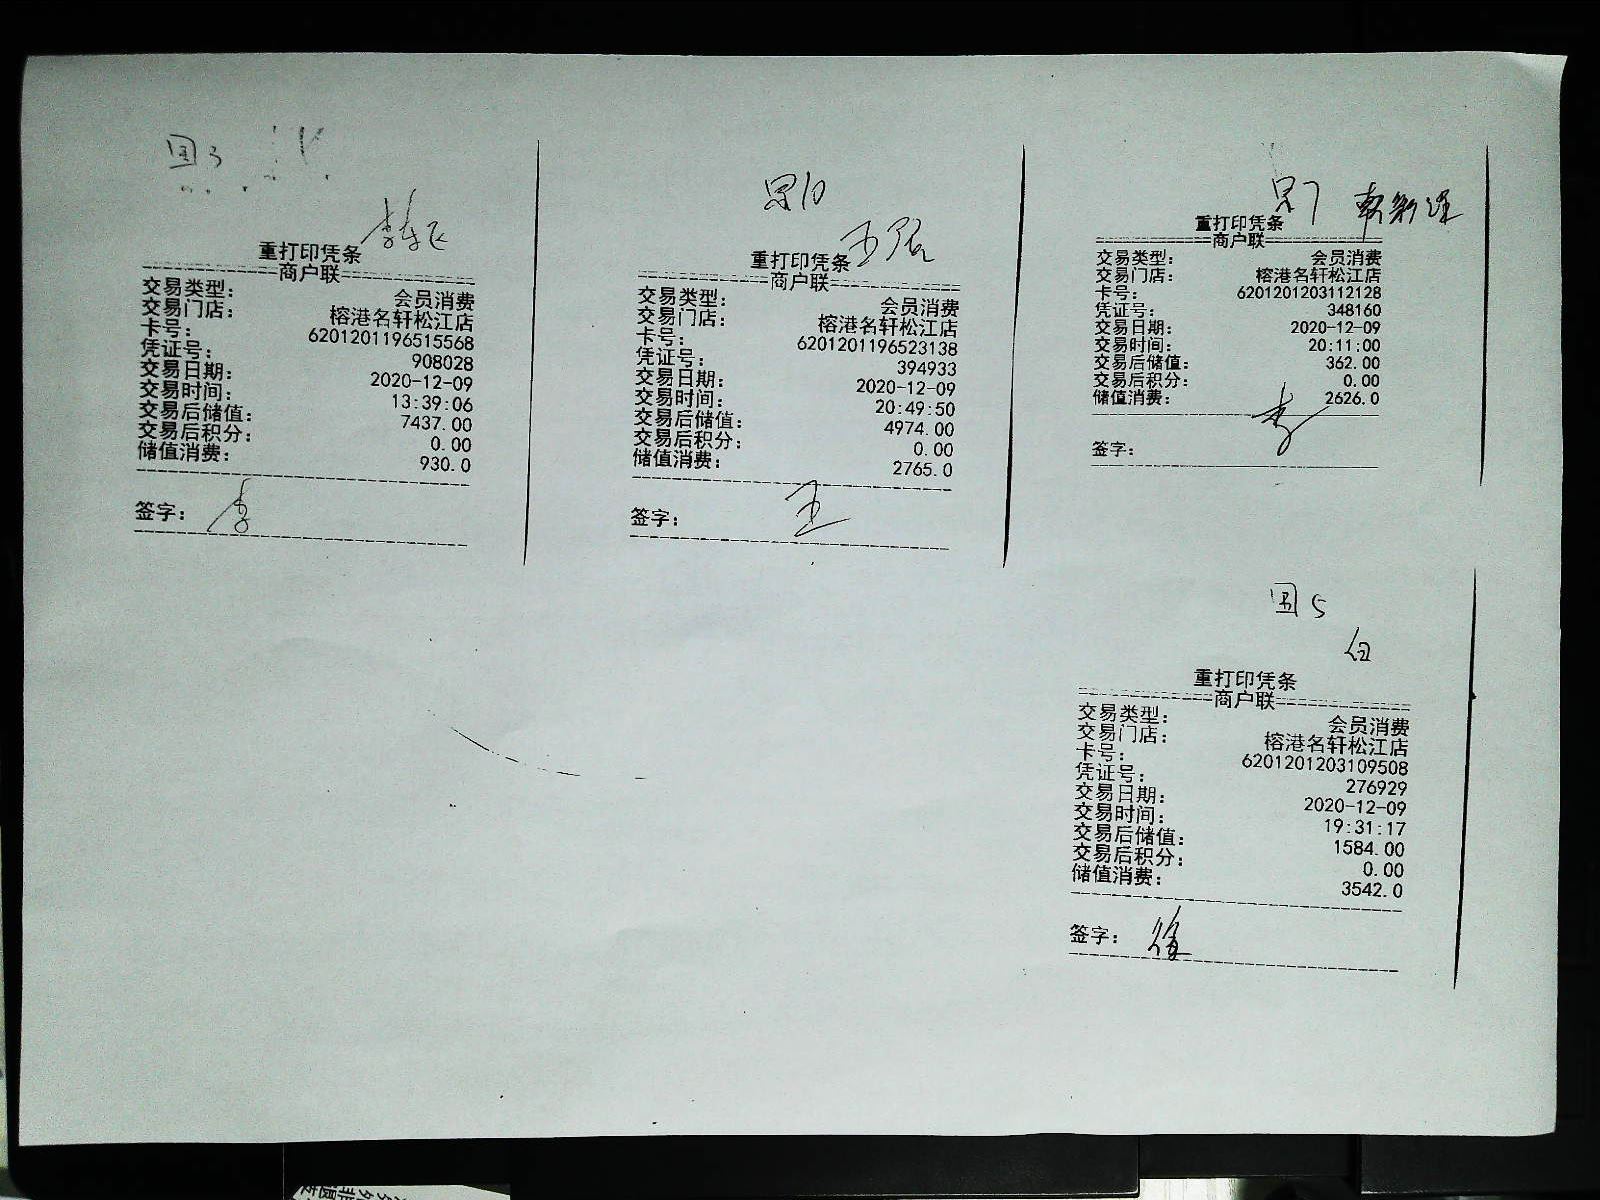 李东飞
重打印凭条
商户联
交易类型： 会员消费
交易门店： 榕港名轩松江店
卡号： 6201201196515568
凭证号： 908028
交易日期： 2020-12-09
交易时间： 13:39:06
交易后储值： 7437.00
交易后积分： 0.00
储值消费： 930.0
签字： 李
重打印凭条
商户联
交易类型： 会员消费
交易门店： 榕港名轩松江店
卡号： 6201201196523138
凭证号： 394933
交易日期： 2020-12-09
交易时间： 20:49:50
交易后储值： 4974.00
交易后积分： 0.00
储值消费： 2765.0
签字： 王
重打印凭条
商户联
交易类型： 会员消费
交易门店： 榕港名轩松江店
卡号： 6201201203112128
凭证号： 348160
交易日期： 2020-12-09
交易时间： 20:11:00
交易后储值： 362.00
交易后积分： 0.00
储值消费： 2626.0
签字： 李
重打印凭条
商户联
交易类型： 会员消费
交易门店： 榕港名轩松江店
卡号： 6201201203109508
凭证号： 276929
交易日期： 2020-12-09
交易时间： 19:31:17
交易后储值： 1584.00
交易后积分： 0.00
储值消费： 3542.0
签字： 徐